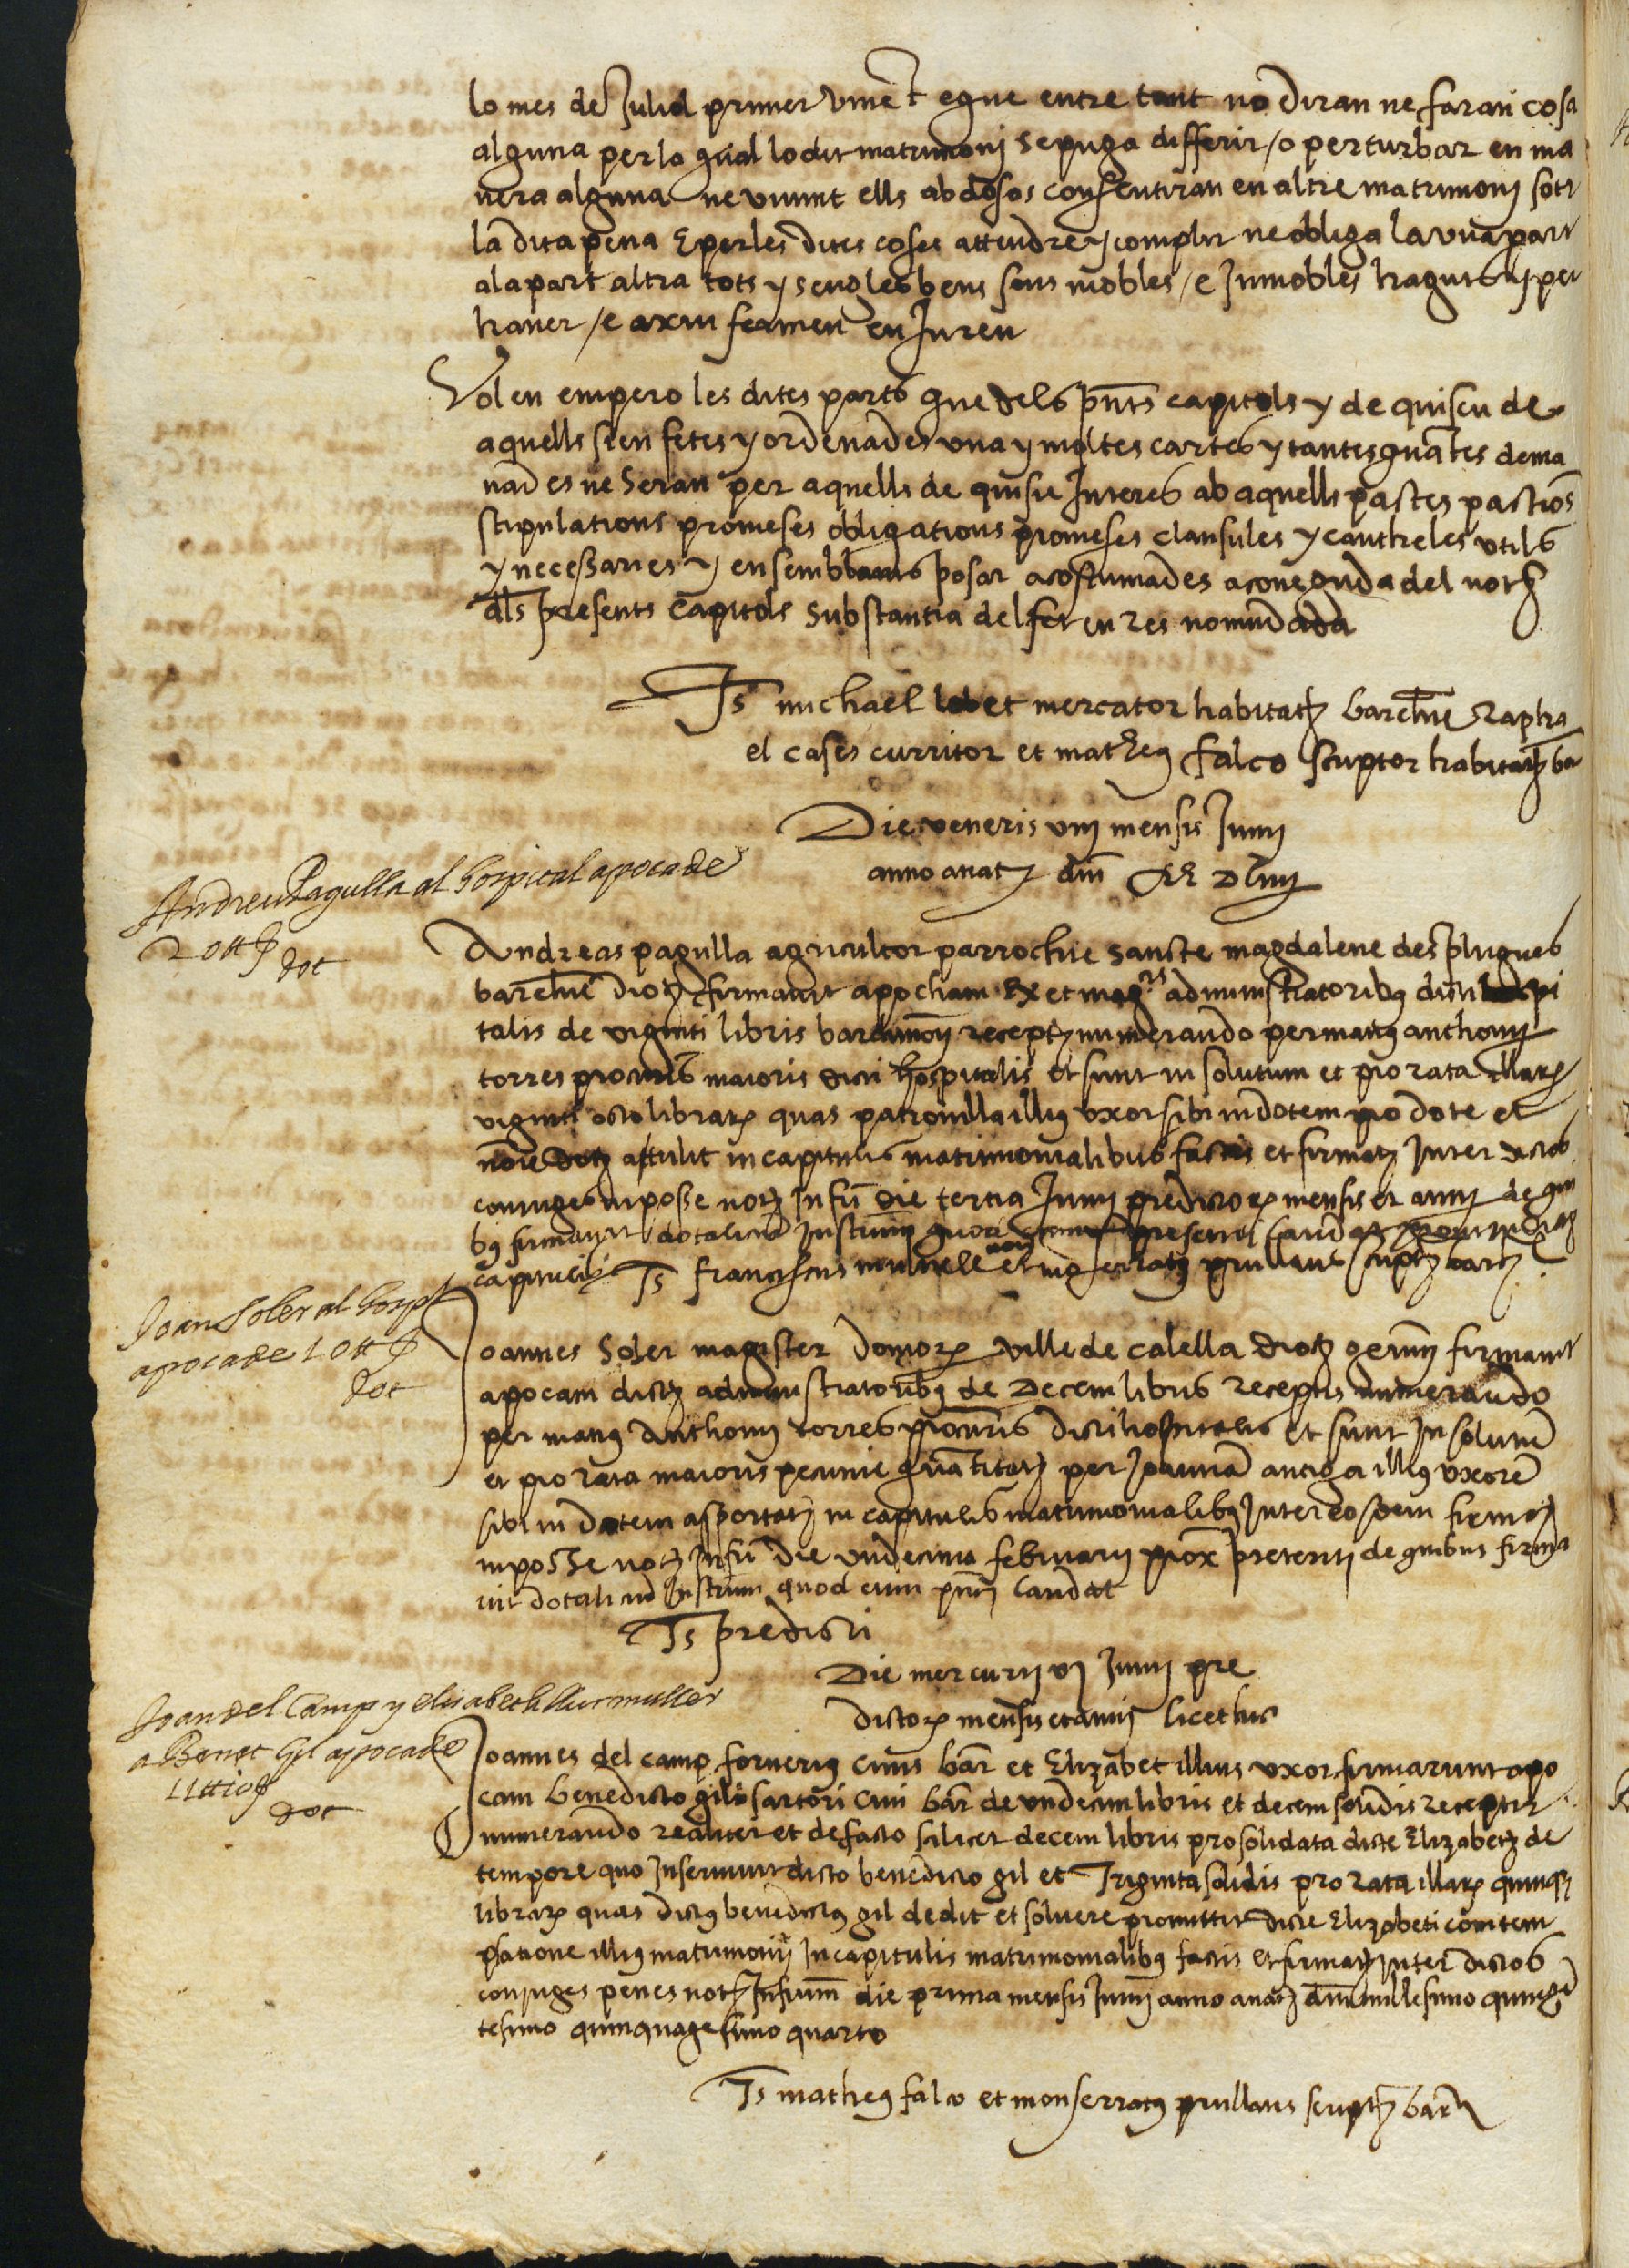 lo mes de Juliol primer vinẽt e que entre tant no diran ne faran cosa
alguna per la qual lo dit matrimoni se puga differir / o perturbar en ma
nera alguna ne vivint ells abdosos consentiran en altre matrimoni sots
la dita pena E per les dites coses attendre y complir ne obliga la una part
a la part altra tots y sengles bens seus mobles / e Inmobles haguts y per
haver / e axin fermen en Juren
Volen empero les dites parts que dels pñts capitols y de quiscu de
aquells sien fetes y ordenades una y moltes cartes y tantes quãtes dema
nades ne seran per aquells de qui sie Interes ab aquells pactes pactiõs
stipulations promeses obligations promeses clausules y cautheles utils
y necessaries y en semblants posar acostumades a coneguda del noť
dls presents Capitols substantia del fet en res no mudada
Ts michael lobet mercator habitatʒ barchñe Rapha
el cases curritor et matheꝰ falco scriptor habitatʒ ba
Die veneris viij mensis Junij
anno a natʒ dñi M D Liiij
Andreu Pagulla al hospital apoca de
20 ℔ ẜ
dot
Andreas pagulla agricultor parrochie sancte magdalene desplugues
barchñe dioč firmavit apocham Rx et magᶜⁱˢ administratoribꝰ dicti hospi
talis de viginti libris barchinoñ receptʒ numerando per manꝰ anthonij
torres procuris maioris dicti hospitalis et sunt in solutum et pro rata illarꝫ
viginti octo librarꝫ quas patronilla illiꝰ uxor sibi in dotem pro dote et
nõie dotʒ attulit in capitulis matrimonialibus factis et firmatʒ inter dictos
coniuges in posse notʒ Infři die tercia Junij predictorꝫ mensis et anni de qui
bꝰ firmavit dotaliciũ Instrum quod cum presenti laudat
capitulis Ts franciscus et moserratꝰ prullans scriptʒ barʒ
Joan Soler al hospl
apoca de 10 ℔ ẜ
dot
Joannes Soler magister domorꝫ ville de calella dioč gerunď firmavit
apocam dictʒ administratoribꝰ de decem libris receptis numerando
per manꝰ Anthonij torres procuris dicti hospitalis et sunt In solutũ
et pro rata maioris pecunie quãtitatʒ per Joannã antiga illiꝰ uxorẽ
sibi in dotem asportatʒ in capitulis matrimonialibꝰ Inter eosdem firmatʒ
in posse notʒ Infři die undecima februarij prox preteriti de quibus firma
vit dotaliciũ Instrum quod cum pñti laudat
Ts predicti
Die mercurij vj Junij pre
dictorꝫ mensis et anni licet hic
Joan del Camp y Elisabeth sa muller
a Benet Gil apoca de
11 ℔ 10 ẜ
dot
Joannes del camp fornerius civis bar̃ et Elizabet illius uxor firmarunt apo
cam benedicto gil sartori civi bar̃ de undecim libris et decem solidis receptis
numerando realiter et de facto scilicet decem libris pro solidata dicte Elizabetʒ de
tempore quo Inservivit dicto benedicto gil et Triginta solidis pro rata illarꝫ quinqʒ
librarꝫ quas dictꝰ benedictꝰ gil dedit et solvere promittit dicte Elizabeti contem
platione illiꝰ matrimonij In capitulis matrimonialibꝰ factis et firmatʒ inter dictos
conjuges penes notʒ Infrum die prima mensis Junij anno a natʒ dñi millesimo quingẽ
tesimo quinquagesimo quarto
Ts matheꝰ falco et monserratꝰ prullans scriptʒ barʒ